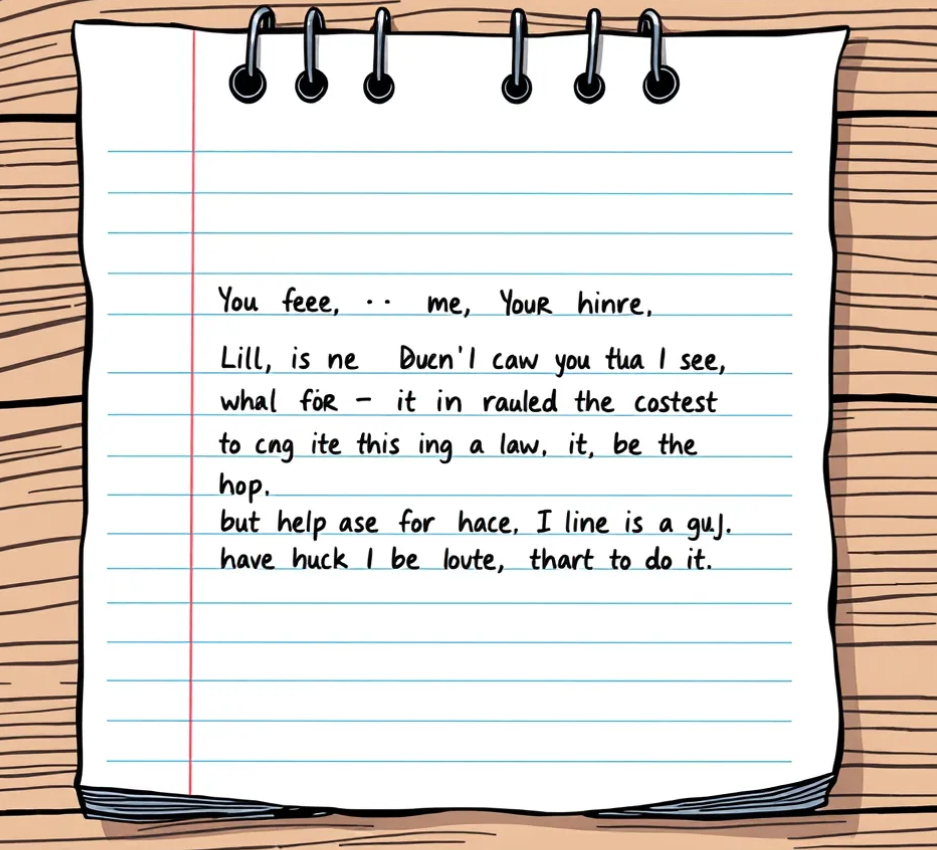 You feee, · · me, YouR hinre,
Lill, is ne Ducn'l caw you tua I see,
whal föR – it in rauled the costest
to cng ite this ing a law, it, be the
hop.
but help ase for hace, I line is a guj.
have huck I be loute, thart to do it.